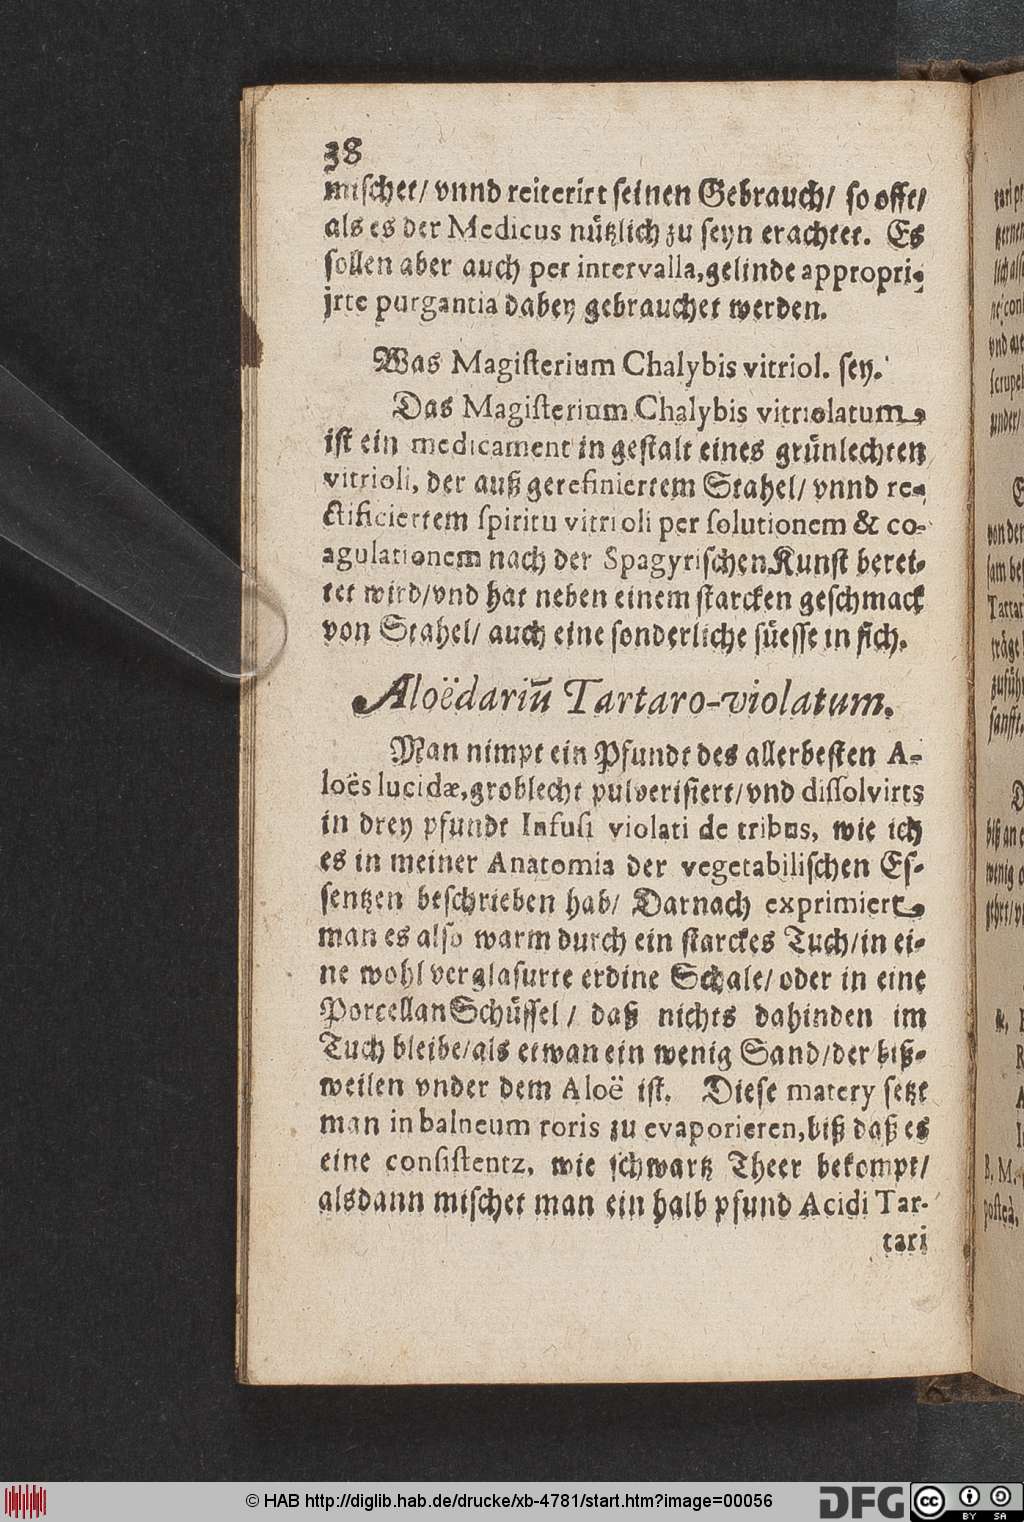 38
mischet/ vnnd reiterirt seinen Gebrauch/ so offt/
als es der Medicus nützlich zu seyn erachtet. Es
sollen aber auch per intervalla, gelinde appropri-
jrte purgantia dabey gebrauchet werden.
Was Magisterium Chalybis vitriol. sey.
Das Magisterium Chalybis vitriolatum,
ist ein medicament in gestalt eines grünlechten
vitrioli, der auß gerefiniertem Stahel/ vnnd re-
ctificiertem spiritu vitrioli per solutionem & co-
agulationem nach der Spagyrischen Kunst berei-
tet wird/ vnd hat neben einem starcken geschmack
von Stahel/ auch eine sonderliche süesse in sich.
Aloëdariū Tartaro-violatum.
Man nimpt ein Pfundt des allerbesten A-
loës lucidæ, groblecht pulverisiert/ vnd dissolvirts
in drey pfundt Infusi violati de tribus, wie ich
es in meiner Anatomia der vegetabilischen Es-
sentzen beschrieben hab/ Darnach exprimiert
man es also warm durch ein starckes Tuch/ in ei-
ne wohl verglasurte erdine Schale/ oder in eine
Porcellan Schüssel/ daß nichts dahinden im
Tuch bleibe/ als etwan ein wenig Sand/ der biß-
weilen vnder dem Aloë ist. Diese matery setzt
man in balneum roris zu evaporieren, biß daß es
eine consistentz, wie schwartz Theer bekompt/
alsdann mischet man ein halb pfund Acidi Tar-
tari
© HAB http://diglib.hab.de/drucke/xb-4781/start.htm?image=00056
DFG
cc
BY SA